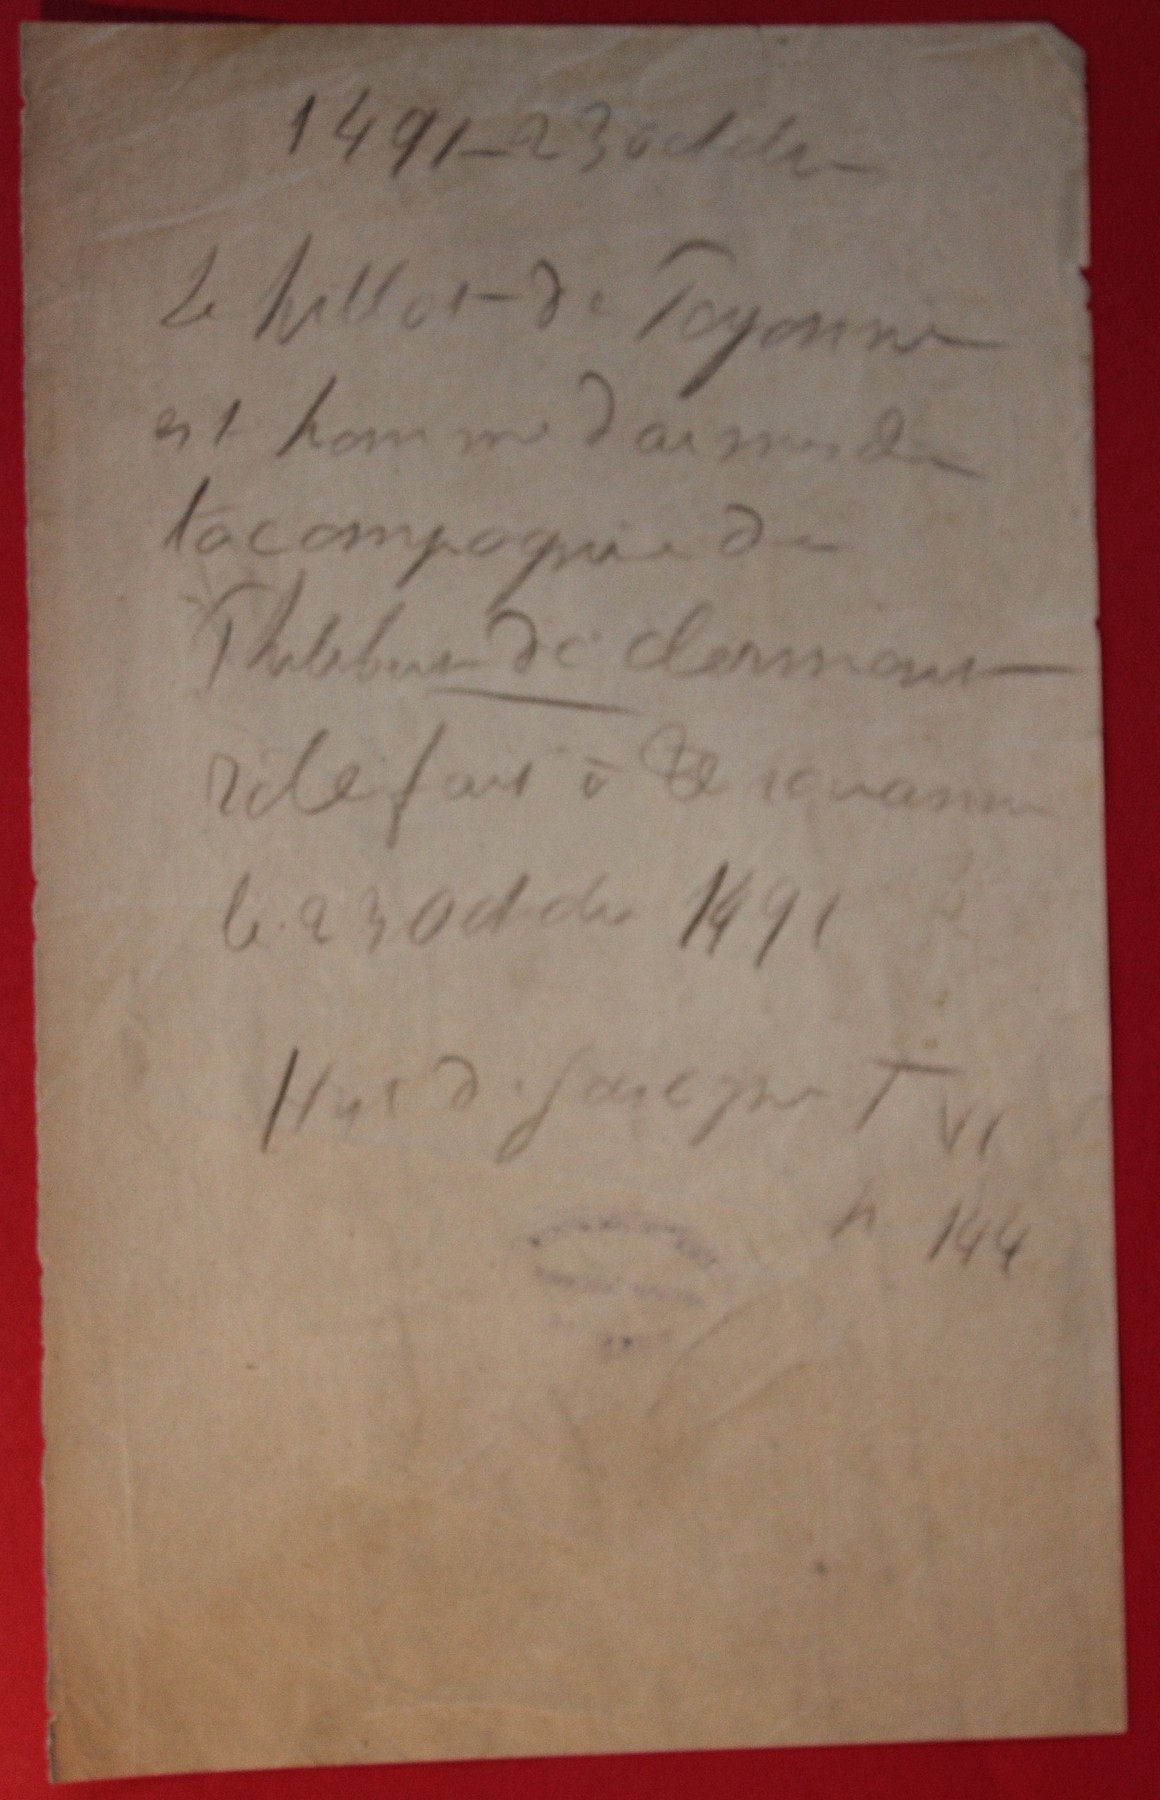 1491 - 23 octobre
Le hillot de Poyanne
est homme d'armes de
la compagnie de
Philibert de Clermont
rôle fait à
le 23 octobre 1491
Hist de Gascogne T VI
p 144